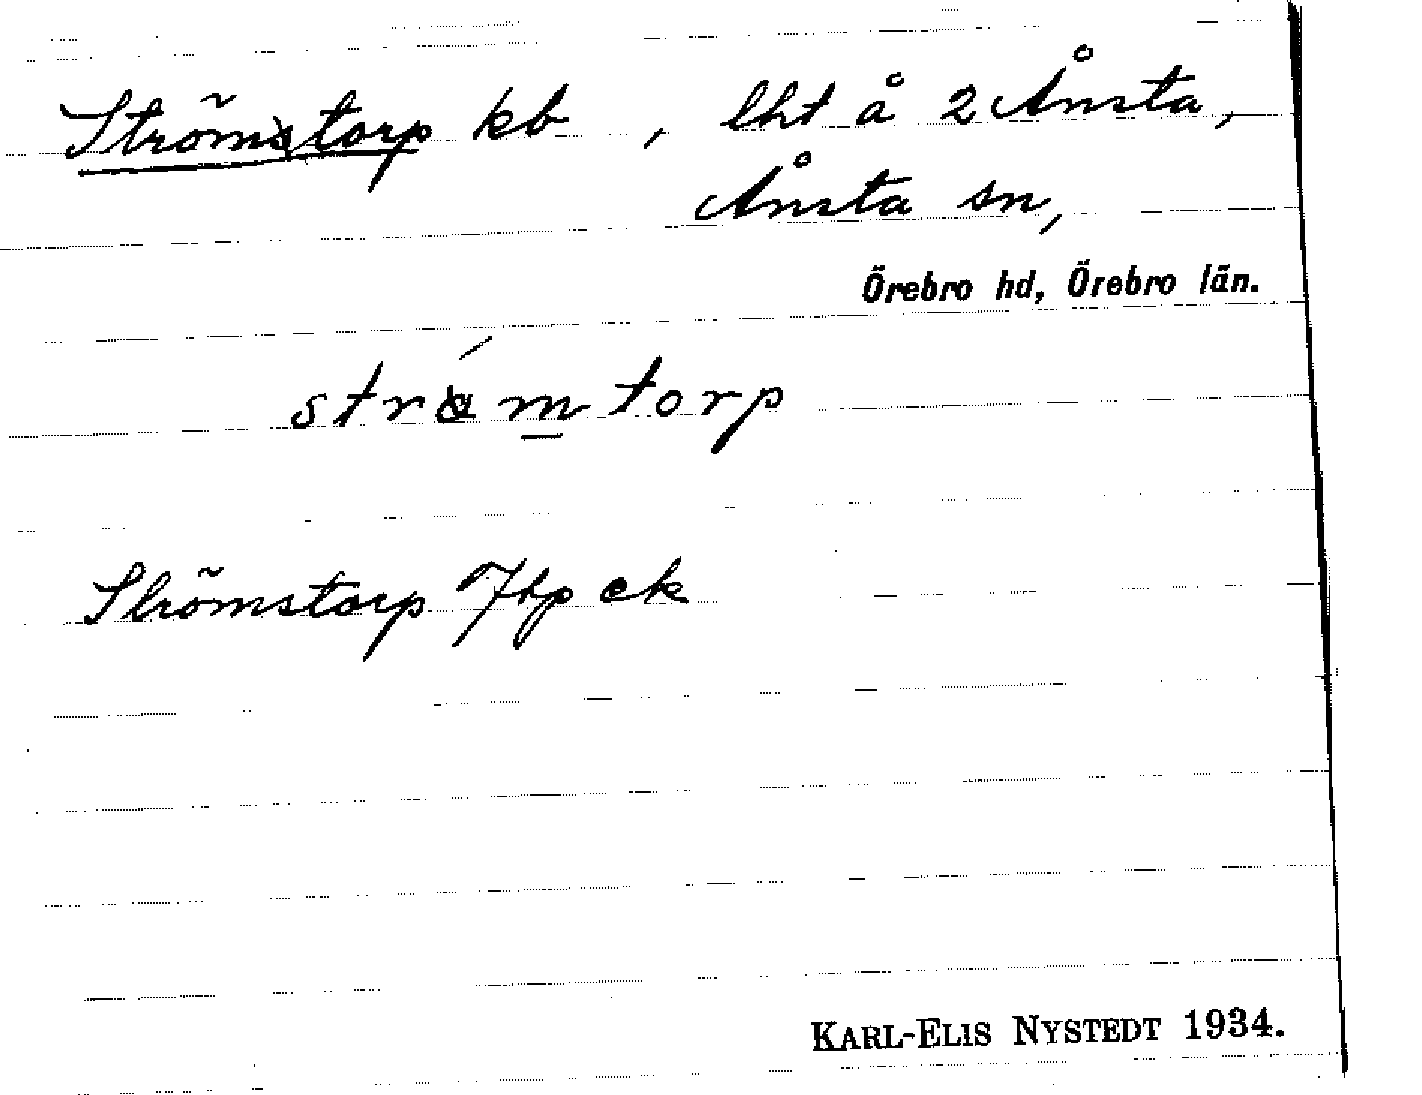 Strömstorp kb, lht å 2 Ånsta,
Ånsta sn,
Örebro hd, Örebro län.
strömtorp
Strömstorp Jbp ek
KARL-ELIS NYSTEDT 1934.